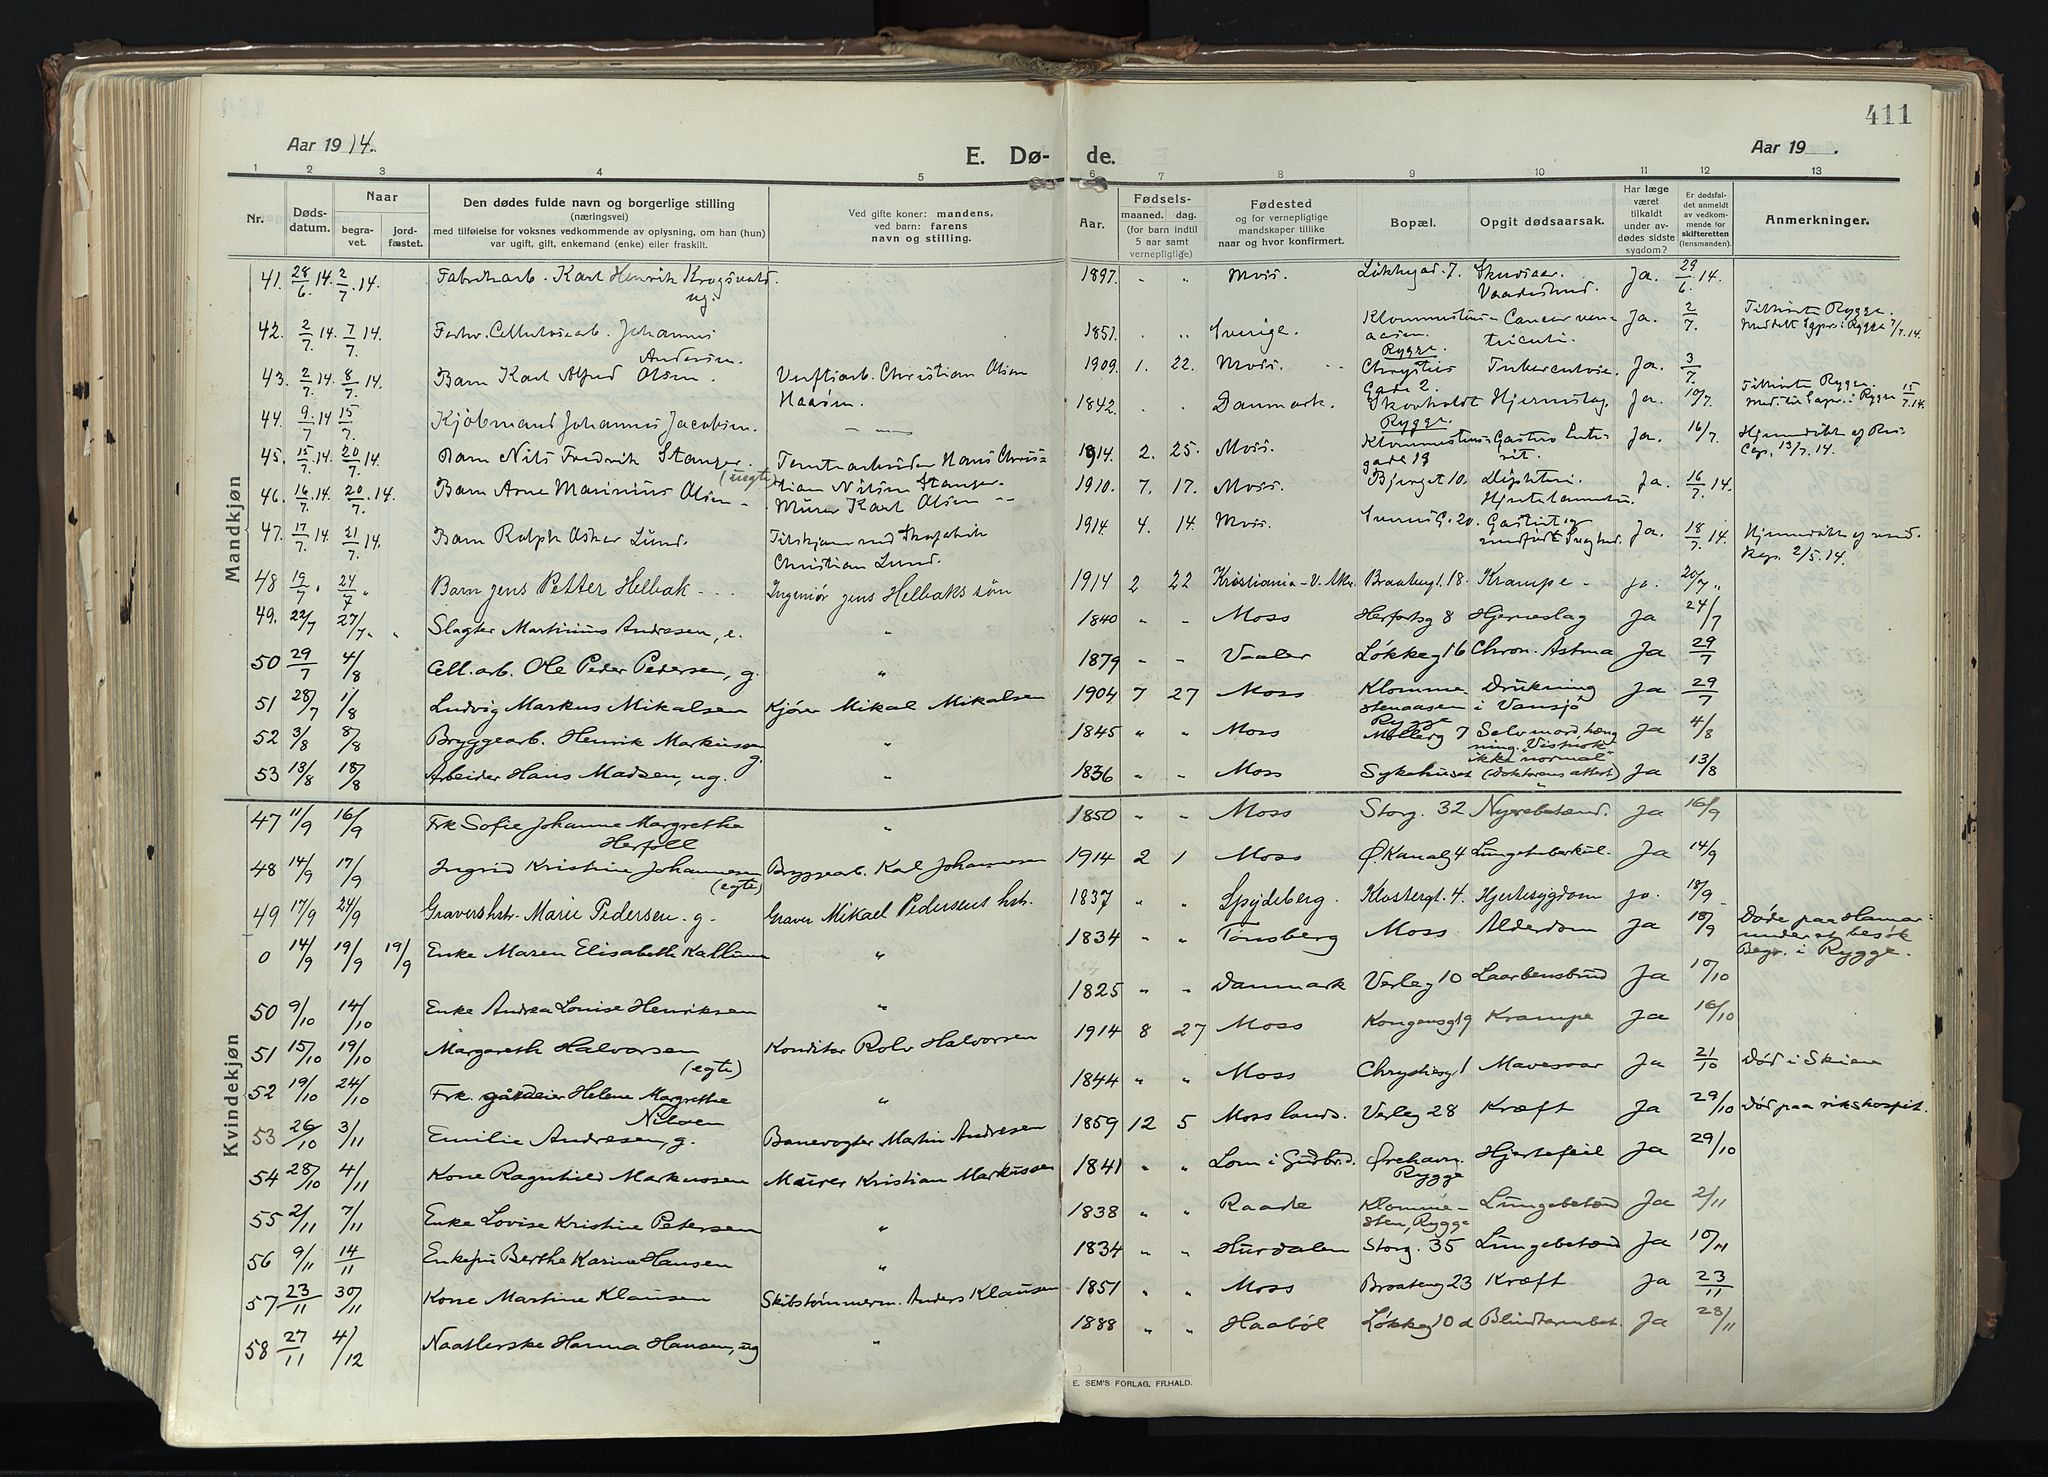 411
Aar 1914.
E. Dø- de.
Aar 19 .
1 2 3 4 5 6 7 8 9 10 11 12 13
Nr.
Døds-
datum.
Naar
begra-
vet.
jord-
fæstet.
Den dødes fulde navn og borgerlige stilling
(næringsvei)
med tilføielse for voksnes vedkommende av oplysning, om han (hun)
var ugift, gift, enkemand (enke) eller fraskilt.
Ved gifte koner: mandens.
ved barn: farens
navn og stilling.
Aar.
Fødsels-
maaned. dag.
(for barn indtil
5 aar samt
vernepligtige)
Fødested
og for vernepligtige
mandskaper tillike
naar og hvor konfirmert.
Bopæl.
Opgit dødsaarsak.
Har læge
været
tilkaldt
under av-
dødes sidste
sygdom?
Er dødsfal-
det anmeldt
av vedkom-
mende for
skifteretten
(lensmanden).
Anmerkninger.
Mandkjøn
41. 28/6 14. 2/7 14. Fabrikarb. Karl Henrik Krogsvold. ug. 1897. " " Moss. Løkkegad. 7. Skudsaar. Vaadeskud. Ja. 29/6 14.
42. 2/7 14. 7/7 14. Forhv. Cellulosearb. Johannes Andersen. 1851. " " Sverige. Rygge. Cancer ventriculi. Ja. 2/7. Tilhørte Rygge.
43. 2/7 14. 8/7 14. Barn Karl Alfred Olsen. Verftsarb. Christian Olsen 1909. 1. 22. Moss. Chrysties Gade 2. Tuberculose. Ja. 3/7.
44. 9/7 14 15/7. Kjøbmand Johannes Jacobsen. 1842. " " Danmark. Skovholdt Rygge. Hjerneslag. Ja. 10/7. Tilhørte Rygge.
45. 15/7 14. 20/7 14. Barn Nils Fredrik Stanger. (uegte) Hans Christian Nilsen Stanger. 1914. 2. 25. Moss. gade 13 Gastro Enterit. Ja. 16/7.
46. 16/7 14. 20/7 14. Barn Arne Marinius Olsen Murer Karl Olsen 1910. 7. 17. Moss. Bjerget 10. Difteri. Ja. 16/7 14.
47. 17/7 14. 21/7 14. Barn Ralph Asker Lund. Christian Lund. 1914. 4. 14. Moss. Ja. 18/7 14.
48 19/7 " 24/7 " Barn Jens Petter Helbak - - - Ingeniør Jens Helbaks søn 1914 2 22 Kristiania - V. Aker. Braatengt. 18. Krampe - Ja. 20/7 "
49. 22/7 27/7 " " Slagter Martinius Andresen, e. " 1840 " " Moss Herfortsg 8 Hjerneslag Ja 24/7
50 29/7 4/8 Cell. arb. Ole Peder Pedersen, g. " 1879 " " Vaaler Løkkeg 16 Chron. Astma Ja 29/7
51 28/7 1/8 Ludvig Markus Mikalsen Kjører Mikal Mikalsen 1904 7 27 Moss Klommestenaasen Rygge Drukning i Vansjø Ja 29/7
52 3/8 8/8 Bryggearb. Henrik Markussen g. " 1845 " " Moss Møllerg 7 Selvmord, hængning. "Vistnok ikke normal" (Doktorens attest) Ja 4/8
53 13/8 18/8 Arbeider Hans Madsen, ug. " 1836 " " Moss Sykehuset " Ja 13/8
Kvindekjøn
47 11/9 16/9 Frk Sofie Johanne Margrethe Herföll " 1850 " " Moss Storg. 32 Nyrebetænd. Ja 16/9
48 14/9 17/9 Ingrid Kristine Johannesen (egte) Bryggearb. Karl Johannesen 1914 2 1 Moss Ø. Kanalg 4 Lungetuberkul. Ja 14/9
49 17/9 24/9 Gravershstr. Marie Pedersen. g. Graver Mikael Pedersens hstr. 1837 " " Spydeberg. Klostergt. 4. Hjertesygdom Ja. 18/9
0 14/9 19/9 19/9 Enke Maren Elisabeth Kallum " 1834 " " Tønsberg Moss Alderdom Ja 18/9 Døde paa Hamar under et besøk Begr. i Rygge.
50 9/10 14/10 Enke Andrea Louise Henriksen " 1825 " " Danmark Verleg 10 Laarbensbrud Ja 10/10
51 15/10 19/10 Margareth Halvorsen (egte) Konditor Rolv Halvorsen 1914 8 27 Moss Kongensg 19 Krampe Ja 16/10
52 19/10 24/10 Frk. gårdeier Helene Margrethe Nilsen " 1844 " " Moss Chrystiesg 1 Mavesaar Ja 21/10 Død i Skien
53 26/10 3/11 Emilie Andresen, g. Banevogter Martin Andresen 1859 12 5 Moss lands. Verleg 28 Kræft Ja 29/10 Død paa rikshospit.
54 28/10 4/11 Kone Ragnhild Markussen Maurer Kristian Markussen 1841 " " Lom i Gudbrd. Ørehavn. Rygge Hjertefeil Ja 29/10
55 2/11 7/11 Enke Lovise Kristine Petersen " 1838 " " Raade Klommesten, Rygge Lungebetænd Ja 2/11
56 9/11 14/11 Enkefru Berthe Karine Hansen " 1834 " " Hurdalen Storg. 35 Lungebetænd Ja 10/11
57 23/11 30/11 Kone Martine Klausen Skibstømmerm. Anders Klausen 1851 " " Moss Braateng 23 Kræft Ja 23/11
58 27/11 4/12 Naatlerske Hanna Hansen, ug " 1888 " " Haabøl Løkkeg 10 d Blindtarmbet. Ja 28/11
E. SEM'S FORLAG, FR.HALD.